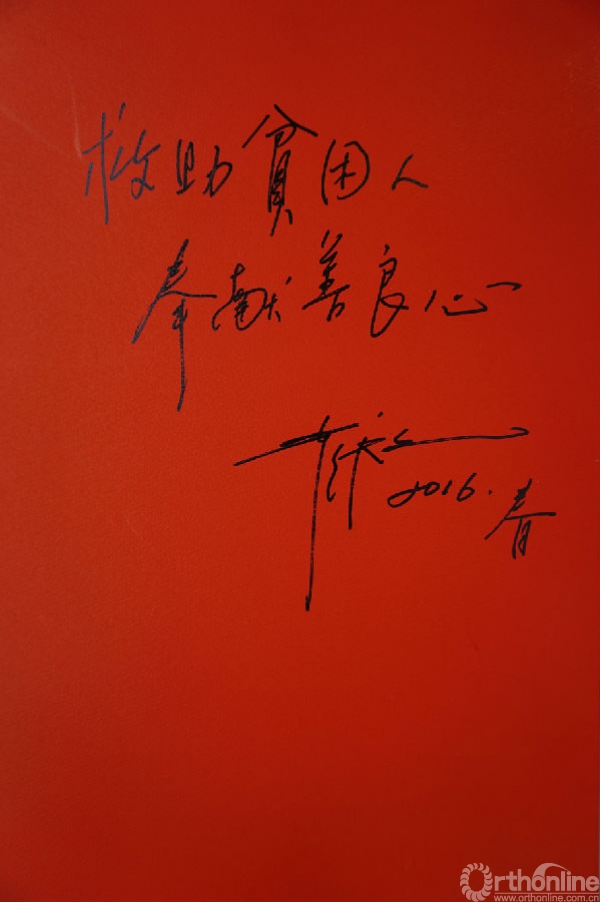 救助贫困人
奉献善良心
2016.春
Orthonline
www.orthonline.com.cn